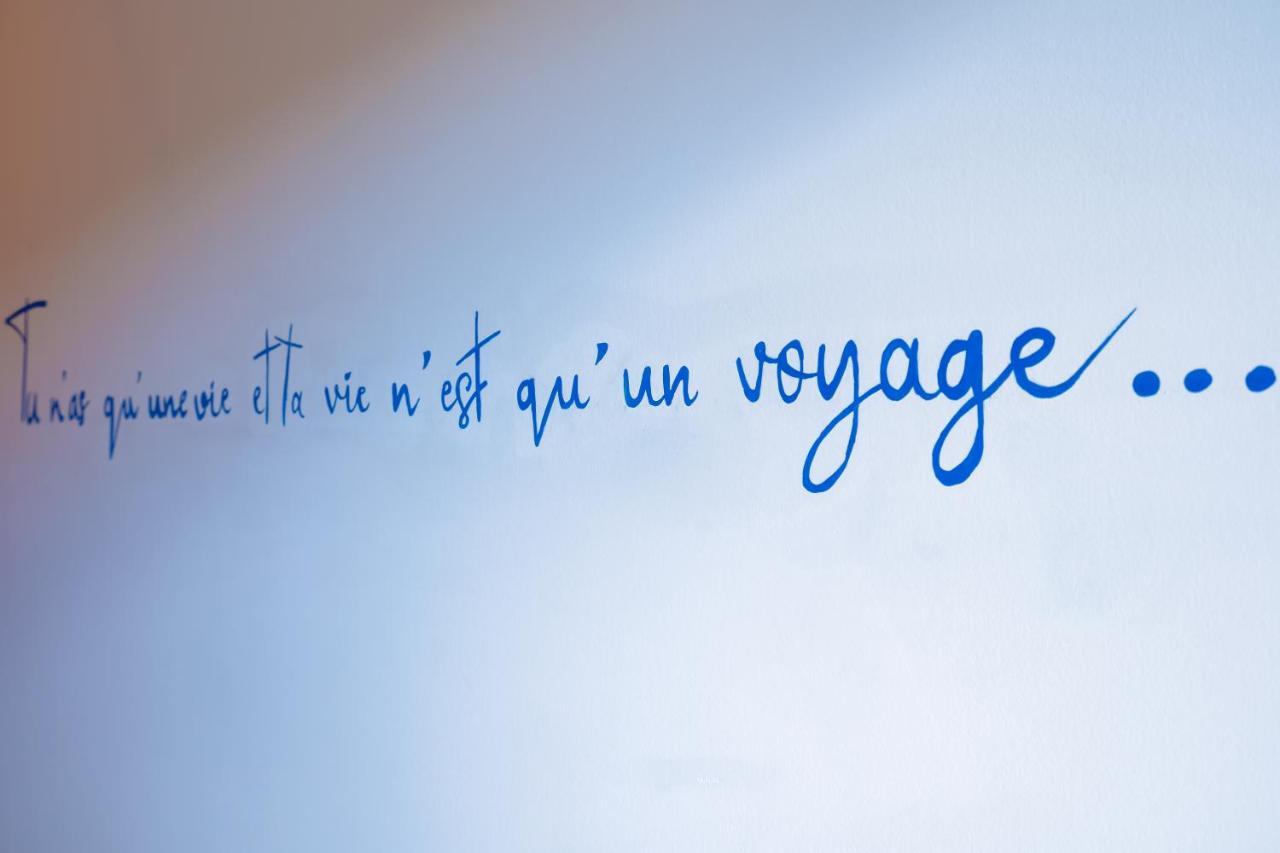 Tu n'as qu'une vie et ta vie n'est qu'un voyage...